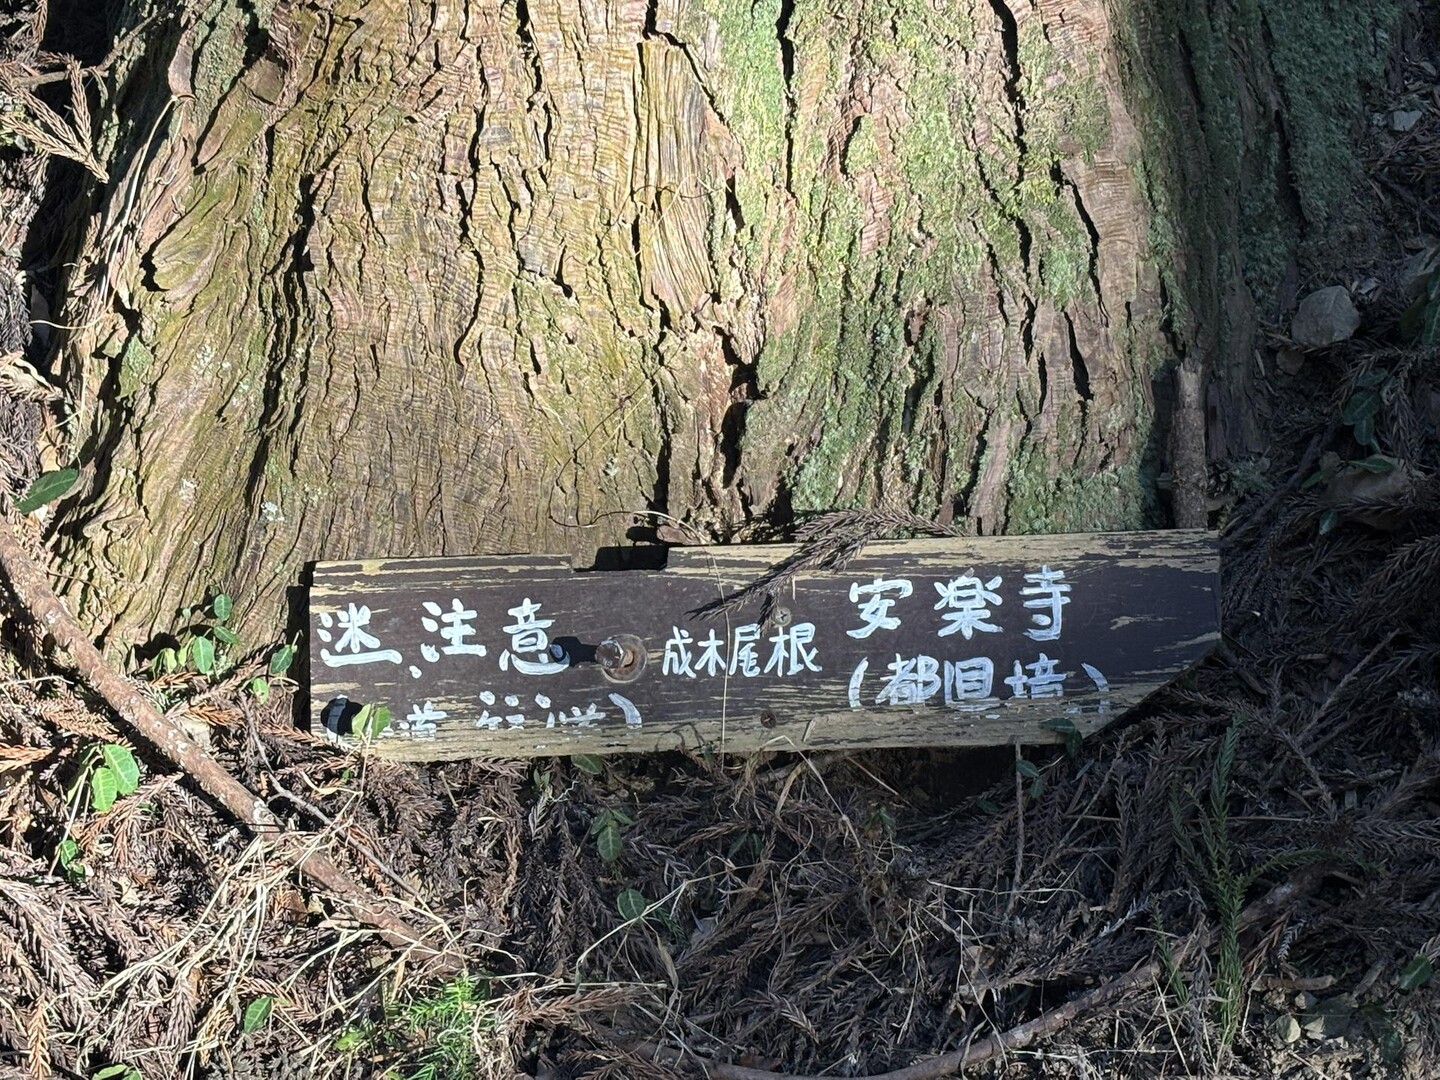 迷 注意 成木尾根 安楽寺
(都県境)